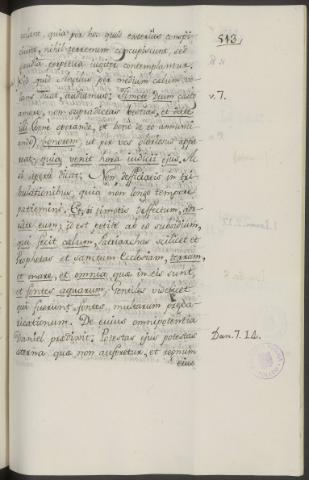 513.
quia per hoc quod exterius conspi
ciunt, nihil terrenum concupiscunt, sed
contemplantur.
quid Angelus per medium cælum vo
lans dicat, audiamus: Timete Deum caste
v. 7.
amore, non supradictas bestias, et date
illi (bene operando, et bene de eo annuntian
do), honorem ut per vos gloriosus appa
reat, quia venit hora iudicii ejus. Ac
si aperte dicat: Non deficiatis in tri
bulationibus, quia non longo tempore
patiemini. Et, si timetis defectum, ado
rate eum, id est petite ab eo subsidium,
qui fecit cælum, Patriarchas scilicet et
Prophetas et sanctam Ecclesiam, terram,
et mare, et omnia quæ in eis sunt,
et fontes aquarum, Gentiles videlicet
qui fuerunt fontes multarum prædi
cationum. De cuius omnipotentia
Daniel prædixit: Potestas ejus potestas
Dan. 7. 14.
æterna quæ non auferetur, et regnum
ejus